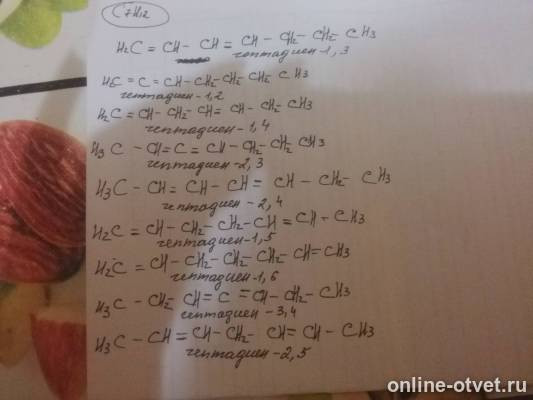 C7H12
H2C = CH - CH = CH - CH2 - CH2 - CH3
гептадиен-1,3
H2C = C = CH - CH2 - CH2 - CH2 - CH3
гептадиен-1,2
H2C = CH - CH2 - CH = CH - CH2 - CH3
гептадиен-1,4
H3C - CH = C = CH - CH2 - CH2 - CH3
гептадиен-2,3
H3C - CH = CH - CH = CH - CH2 - CH3
гептадиен-2,4
H2C = CH - CH2 - CH2 - CH = CH - CH3
гептадиен-1,5
H2C = CH - CH2 - CH2 - CH2 - CH = CH3
гептадиен-1,6
H3C - CH2 - CH = C = CH - CH2 - CH3
гептадиен-3,4
H3C - CH = CH - CH2 - CH = CH - CH3
гептадиен-2,5
online-otvet.ru